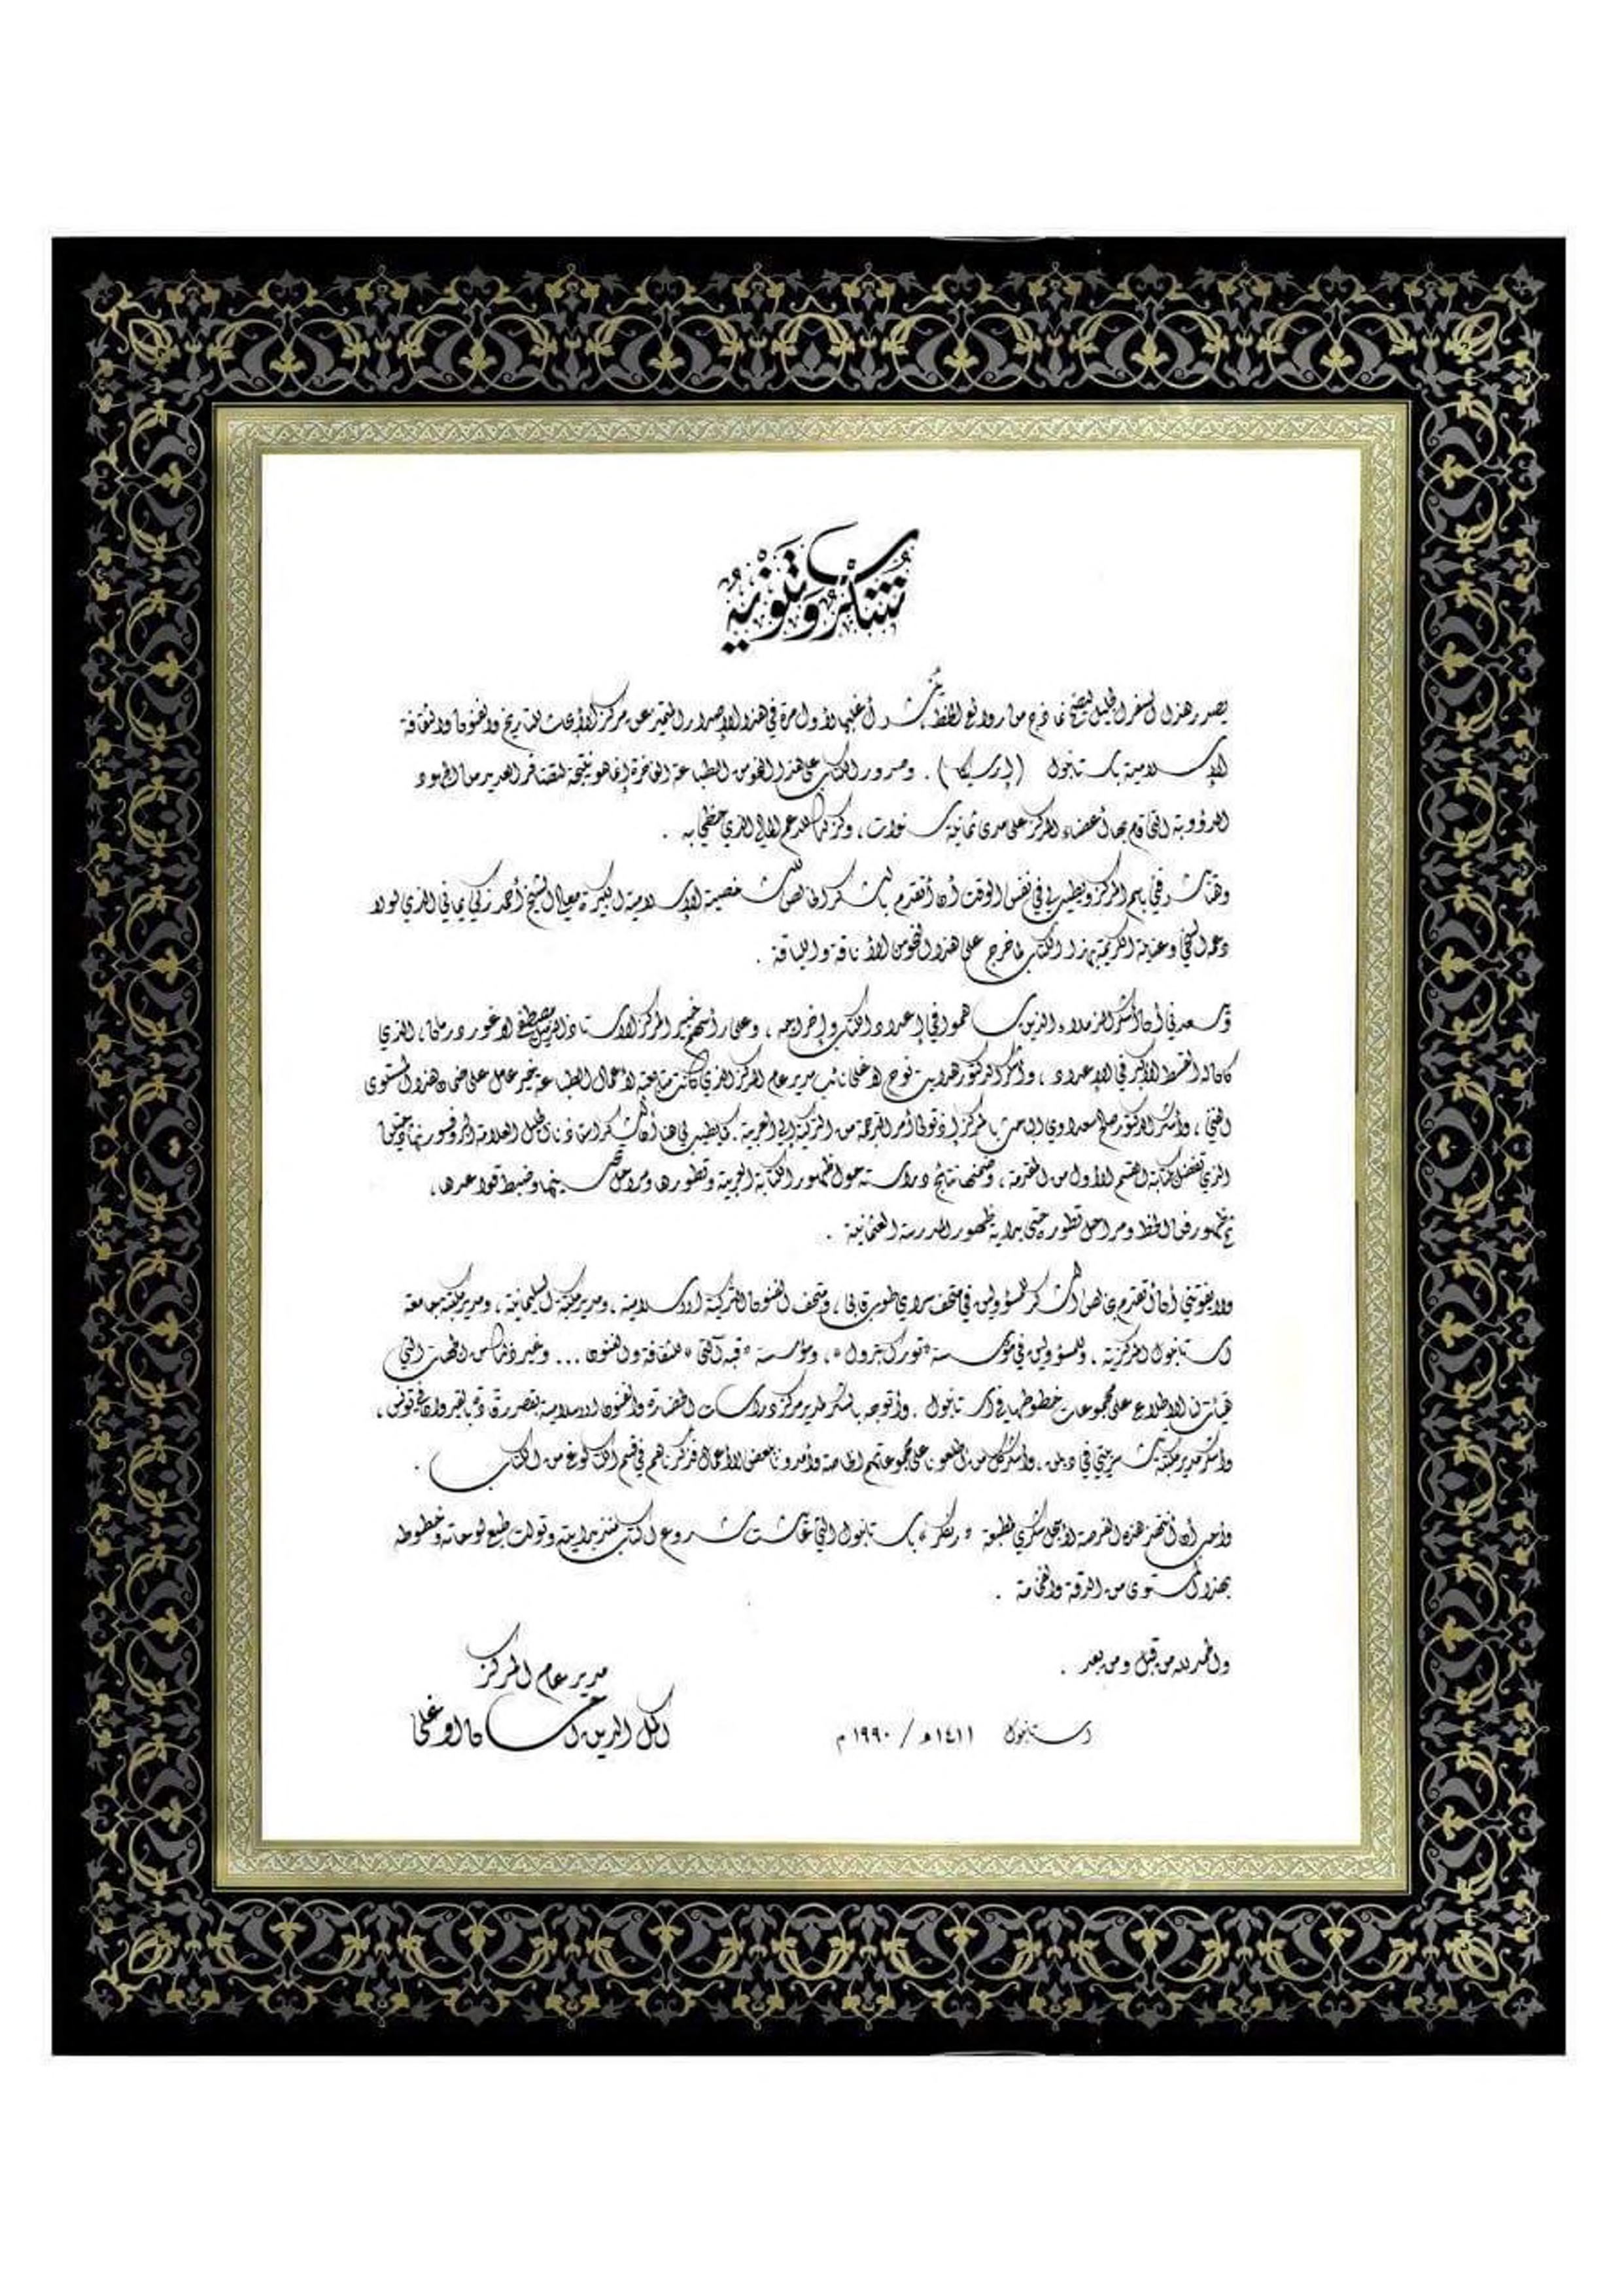 شكر وتنويه
يصدر هذا السفر الجليل ليضم نماذج من روائع الخط يُنشر أغلبها لأول مرة في هذا الإصدار المتميز عن مركز الأبحاث للتاريخ والفنون والثقافة
الإسلامية باستانبول (إرسيكا) . وصدور الكتاب على هذا النحو من الطباعة الفاخرة إنما هو نتيجة لتضافر العديد من الجهود
الدؤوبة التي قام بها أعضاء المركز على مدى ثمانية سنوات ، وكذلك للدعم المالي الذي حظي به .
وهنا يشرفني باسم المركز ويطيب لي في نفس الوقت أن أتقدم بالشكر الخالص للشخصية الإسلامية الكبيرة معالي الشيخ أحمد زكي يماني الذي لولا
دعمه السخي وعنايته الكريمة بهذا الكتاب لما خرج على هذا النحو من الأناقة واللياقة .
ويسعدني أن أشكر الزملاء الذين ساهموا في إعداد الكتاب وإخراجه ، وعلى رأسهم خبير المركز الاستاذ المهندس مصطفى اوغور درمان ، الذي
كان له القسط الأكبر في الإعداد ، وأشكر الدكتور هدايت نوح اوغلى نائب مدير عام المركز الذي كانت متابعته لأعمال الطباعة خير عامل على ضمان هذا المستوى
الفني ، وأشكر الدكتور صالح سعداوي الباحث بالمركز إذ تولى أمر الترجمة من التركية إلى العربية . كما يطيب لي هنا أن أشكر استاذنا الجليل العلامة البروفسور نهاد چتين
الذي تفضل بكتابة القسم الأول من المقدمة ، وضمنها نتائج دراسته حول ظهور الكتابة العربية وتطورها ومراحل تحسينها وضبط قواعدها ،
ثم ظهور فن الخط ومراحل تطوره حتى بداية ظهور المدرسة العثمانية .
ولا يفوتني أن أتقدم بخالص الشكر للمسؤولين في متحف سراي طوپ قاپي ، ومتحف الفنون التركية الاسلامية ، ومدير مكتبة السليمانية ، ومدير مكتبة جامعة
استانبول المركزية ، وللمسؤولين في مؤسسة «تورك پترول» ، ومؤسسة «قبه آلتى» للثقافة والفنون ... وغير ذلك من الجهات التي
هيأت لنا الاطلاع على مجموعات خطوطها في استانبول . وأتوجه بالشكر لمدير مركز دراسات الحضارة والفنون الاسلامية بقصر رقادة بالقيروان في تونس ،
وأشكر مدير مكتبة شستر بيتي في دبلن ، وأشكر كل من أطلعونا على مجموعاتهم الخاصة وأمدونا ببعض الأعمال فذكرناهم في قسم الكتالوغ من الكتاب .
وأحب أن أنتهز هذه الفرصة لأسجل شكري لمطبعة «رنكلر» باستانبول التي عايشت مشروع الكتاب منذ بدايته وتولت طبع لوحاته وخطوطه
بهذا المستوى من الدقة والفخامة .
والحمد لله من قبل ومن بعد .
مدير عام المركز
استانبول ١٤١١هـ / ١٩٩٠م
اكمل الدين احسان اوغلى